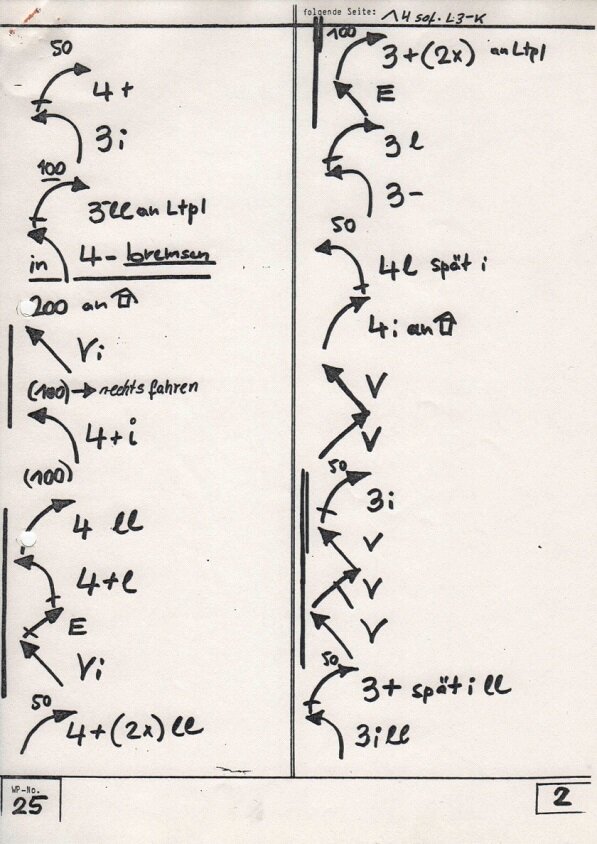 folgende Seite: 14 sof. L3-K
50
4+
3i
100
3-ll an Ltpl
4- bremsen
in
200 an
Vi
(100) → rechts fahren
4+i
(100)
4 ll
4+l
E
Vi
50
4+(2x) ll
WP-No.
25
100
3+(2x) an Ltpl
E
3l
3-
50
4l spät i
4i an
V
V
50
3i
V
V
V
50
3+ spät i ll
3i ll
2